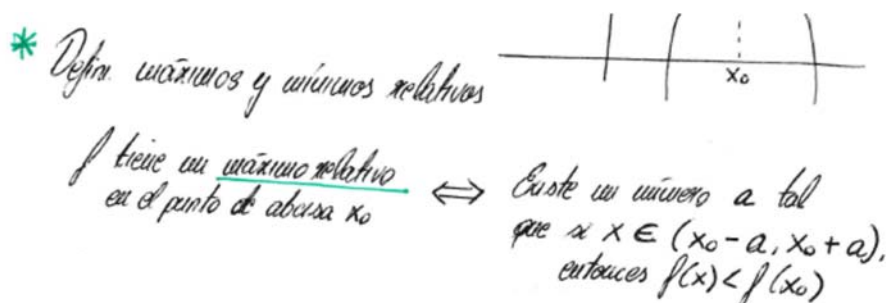 * Defin. máximos y mínimos relativos
x₀
f tiene un máximo relativo
en el punto de abcisa x₀
⇔ Existe un número a tal
que si x ∈ (x₀-a, x₀+a),
entonces f(x) < f(x₀)